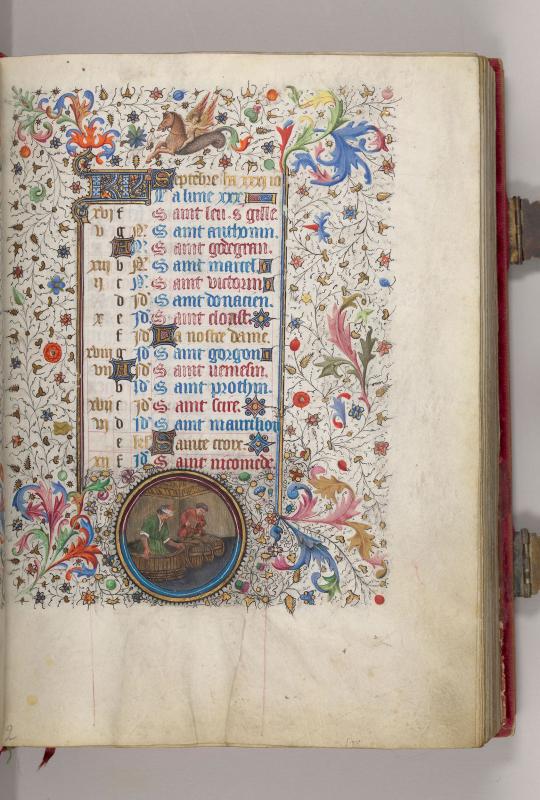 KL Septẽbre ha xxx iours
Et la lune xxx
xvi f Saint leu. s gille.
v g N̄ Saint anthonin.
A N̄ Saint godegran.
xiii b N̄ Saint marcel.
ii c N̄ Saint victorin
d Id Saint donacien.
x e Id Saint cloust.
f Id La nostre dame.
xviii g Id Saint gorgon
vii A Id Saint nemesin.
b Id Saint prothin.
xvii c Id Saint sire.
vi d Id Saint maurilion
e Sainte croix.
xii f Saint nicomede.